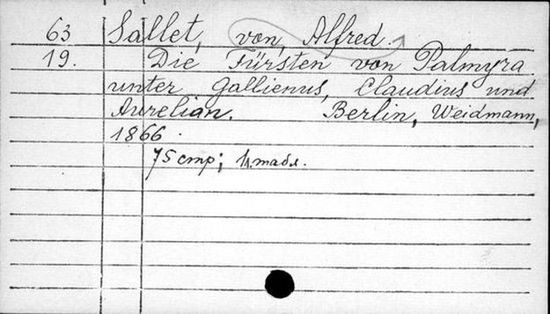 63 Sallet, von, Alfred.
19. Die Fürsten von Palmyra
unter Gallienus, Claudius und
Aurelian. Berlin, Weidmann,
1866.
75 стр; 1 табл.